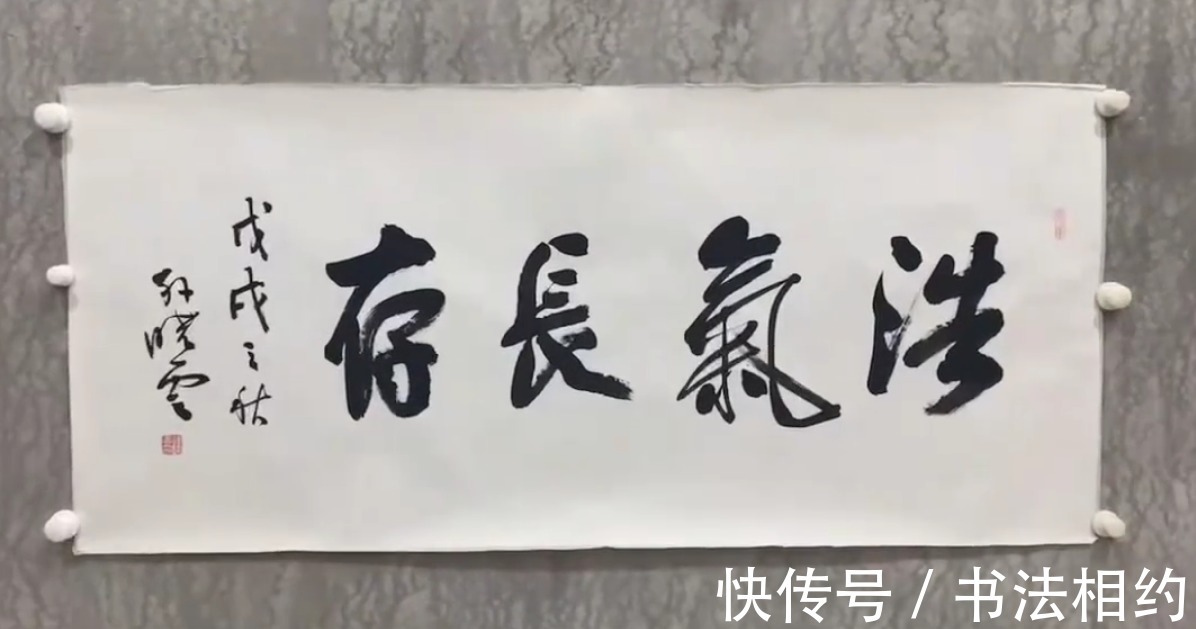 浩氣長存
戊戌之秋
孙晓云
快传号 / 书法相约